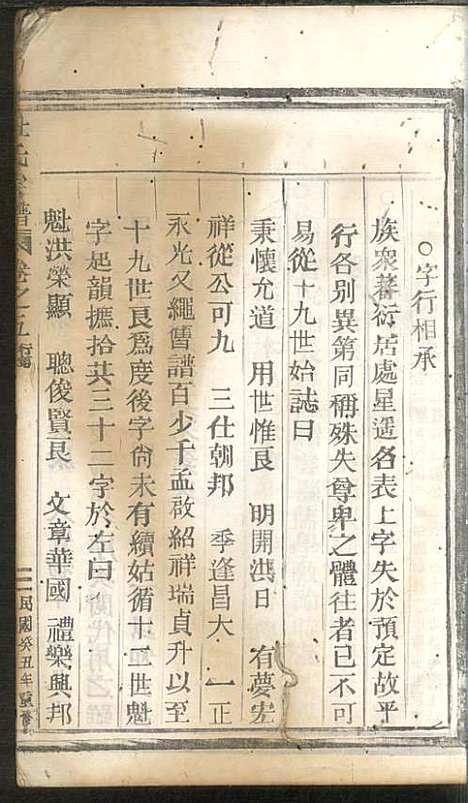 ○字行相承
族衆蕃衍居處星遥名表上字失於預定故平
行各別異第同稱殊失尊卑之體往者已不可
易從十九世始誌曰
秉懷允道　用世惟良　明開洪日　有夢宏
祥從公可九　三仕朝邦　季逢昌大　一正
永光又繩舊譜百少千孟啟紹祥瑞貞升以至
十九世良爲度後字尚未有續姑循十二世魁
字起韻摭拾共三十二字於左曰
魁洪榮顯　聰俊賢良　文章華國　禮樂興邦
氏 譜 卷之五 行 二 民國癸丑年重